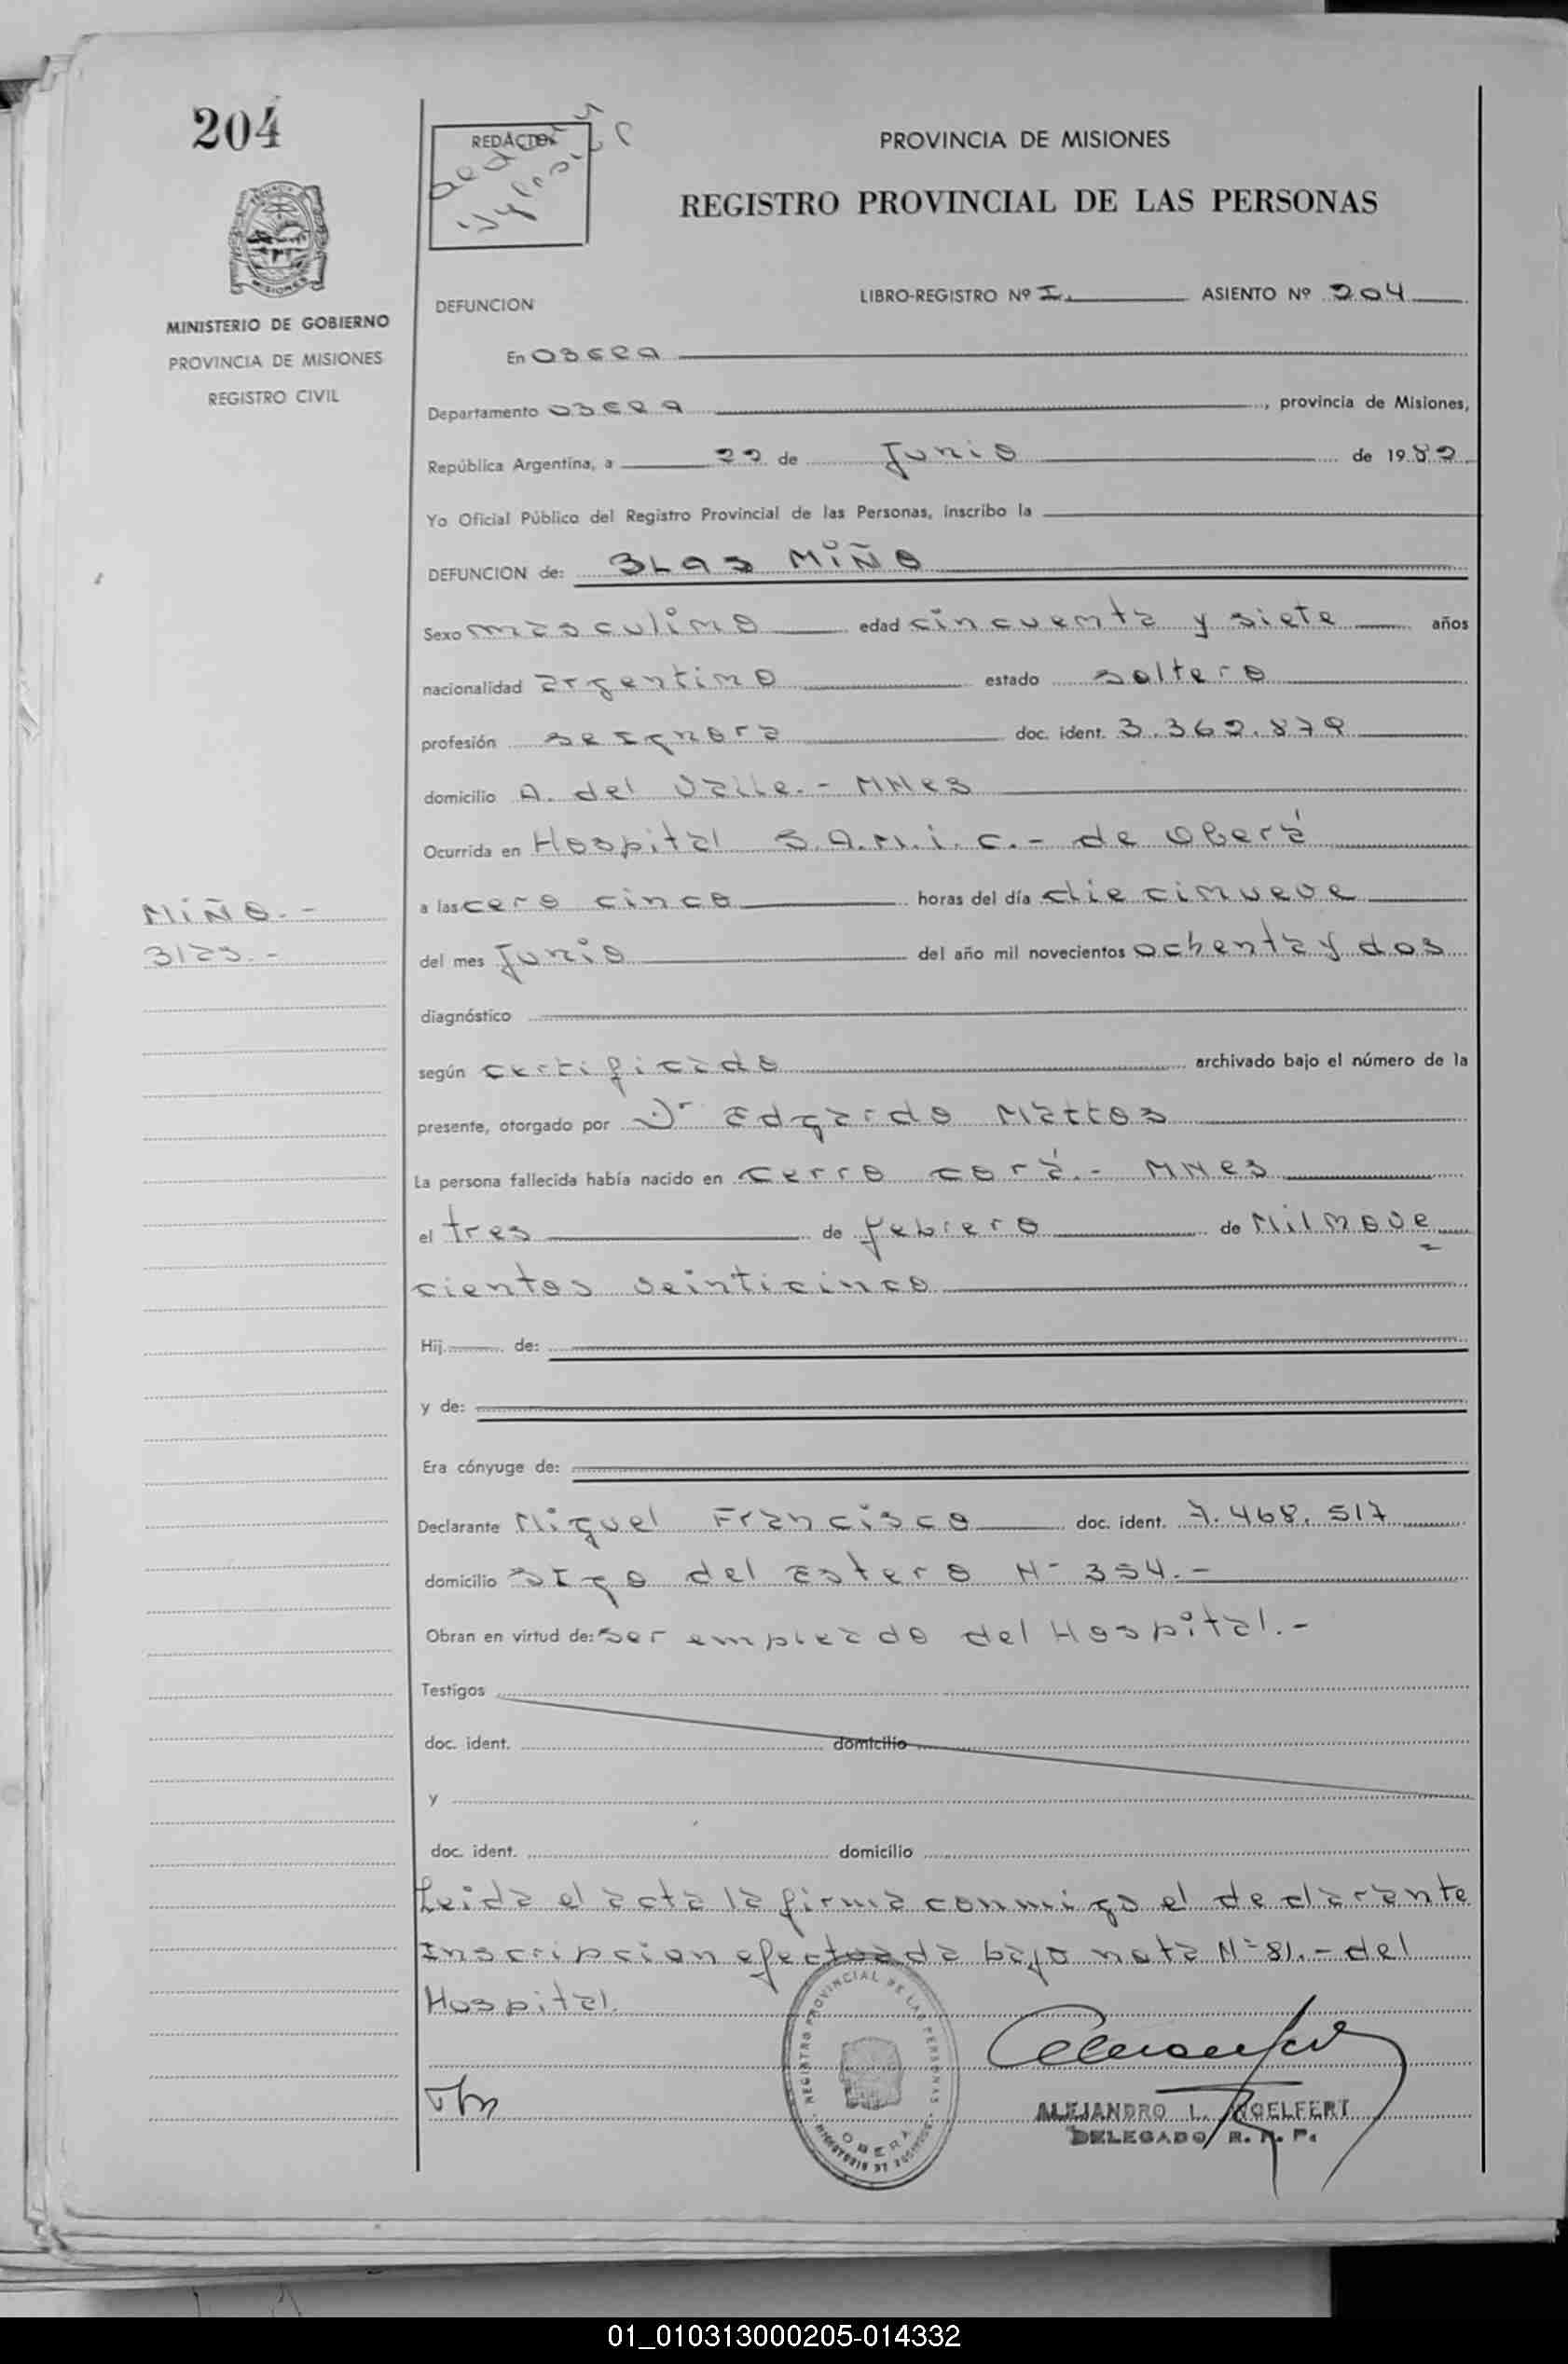 204
REDACTOR
PROVINCIA DE MISIONES
REGISTRO PROVINCIAL DE LAS PERSONAS
MINISTERIO DE GOBIERNO
PROVINCIA DE MISIONES
REGISTRO CIVIL
DEFUNCION
LIBRO-REGISTRO Nº I. ASIENTO Nº 204
En OBERA
Departamento OBERA, provincia de Misiones,
República Argentina, a 22 de Junio de 1982
Yo Oficial Público del Registro Provincial de las Personas, inscribo la
DEFUNCION de: BLAS MIÑO
Sexo masculino edad cincuenta y siete años
nacionalidad argentino estado soltero
profesión se ignora doc. ident. 3.362.879
domicilio A. del Valle.- MNES
Ocurrida en Hospital S.A.M.i.C.- de Oberá
MIÑO.-
Blas.-
a las cero cinco horas del día diecinueve
del mes Junio del año mil novecientos ochenta y dos
diagnóstico
según certificado archivado bajo el número de la
presente, otorgado por Dr Edgardo Mattos
La persona fallecida había nacido en cerro corá.- MNES
el tres de febrero de Milnove
cientos veinticinco
Hij de:
y de:
Era cónyuge de:
Declarante Miguel Francisco doc. ident. 7.468.517
domicilio Stgo del Estero Nº 354.-
Obran en virtud de: ser empleado del Hospital.-
Testigos
doc. ident. domicilio
y
doc. ident. domicilio
Leida el acta la firma conmigo el declarante
Inscripcion efectuada bajo nota Nº 81.- del
Hospital.
REGISTRO PROVINCIAL DE LAS PERSONAS
OBERA
MINISTERIO DE GOBIERNO
ALEJANDRO L. ROELFERT
DELEGADO R. P. P.
01_010313000205-014332